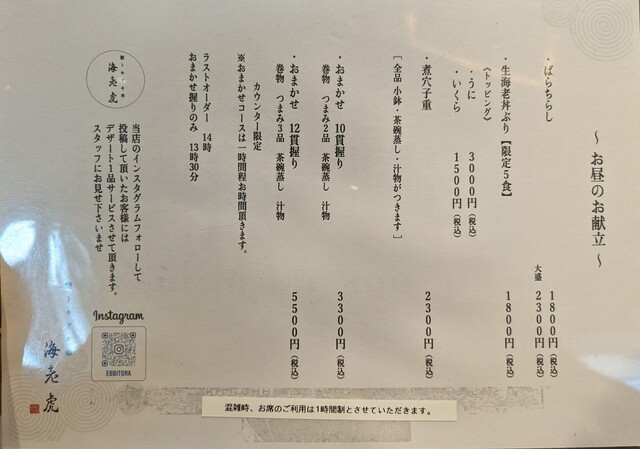 ～お昼のお献立～
・ばらちらし 1800円（税込）
大盛 2300円（税込）
・生海老丼ぶり【限定5食】 1800円（税込）
《トッピング》
・うに 3000円（税込）
・いくら 1500円（税込）
・煮穴子重 2300円（税込）
［全品 小鉢・茶碗蒸し・汁物がつきます］
・おまかせ 10貫握り 3300円（税込）
巻物 つまみ2品 茶碗蒸し 汁物
・おまかせ 12貫握り 5500円（税込）
巻物 つまみ3品 茶碗蒸し 汁物
カウンター限定
※おまかせコースは一時間程お時間頂きます。
ラストオーダー 14時
おまかせ握りのみ 13時30分
海老虎
当店のインスタグラムフォローして
投稿して頂いたお客様には
デザート1品サービスさせて頂きます。
スタッフにお見せ下さいませ
Instagram
EBBITORA
海老虎
混雑時、お席のご利用は1時間制とさせていただきます。